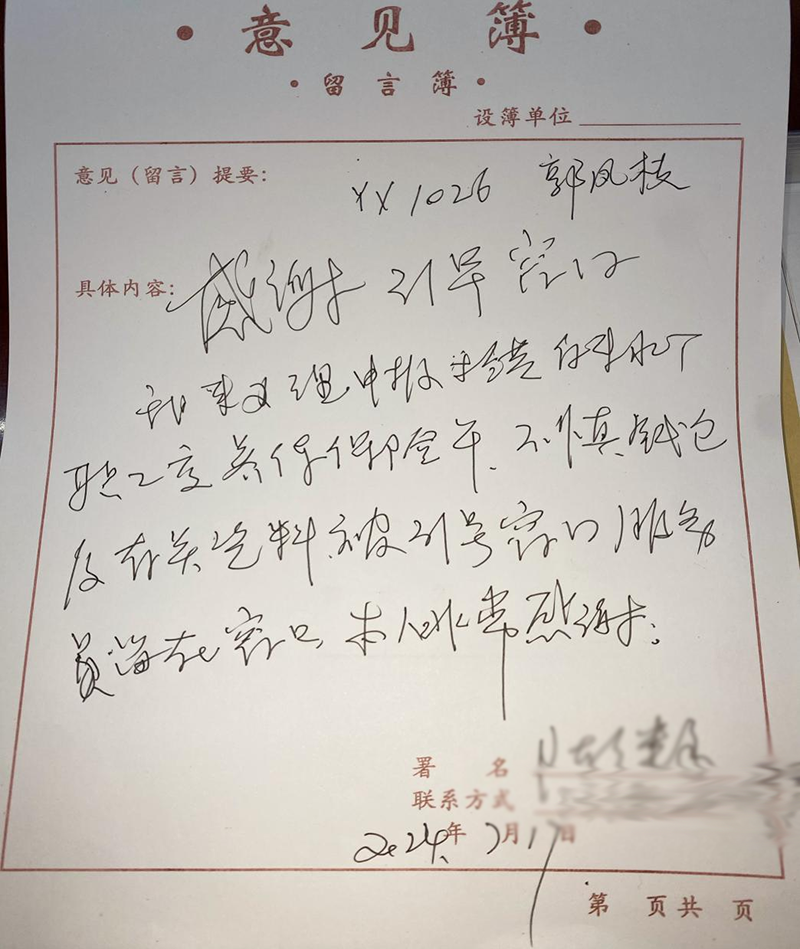 意见簿
留言簿
设簿单位
意见（留言）提要： XX1026 郭凤枝
具体内容： 感谢21号窗口
我来办理申报
职工 医保 不慎钱包
及有关资料被21号窗口服务
员留在窗口，本人非常感谢。
署名
联系方式
2024年7月17日
第 页共 页